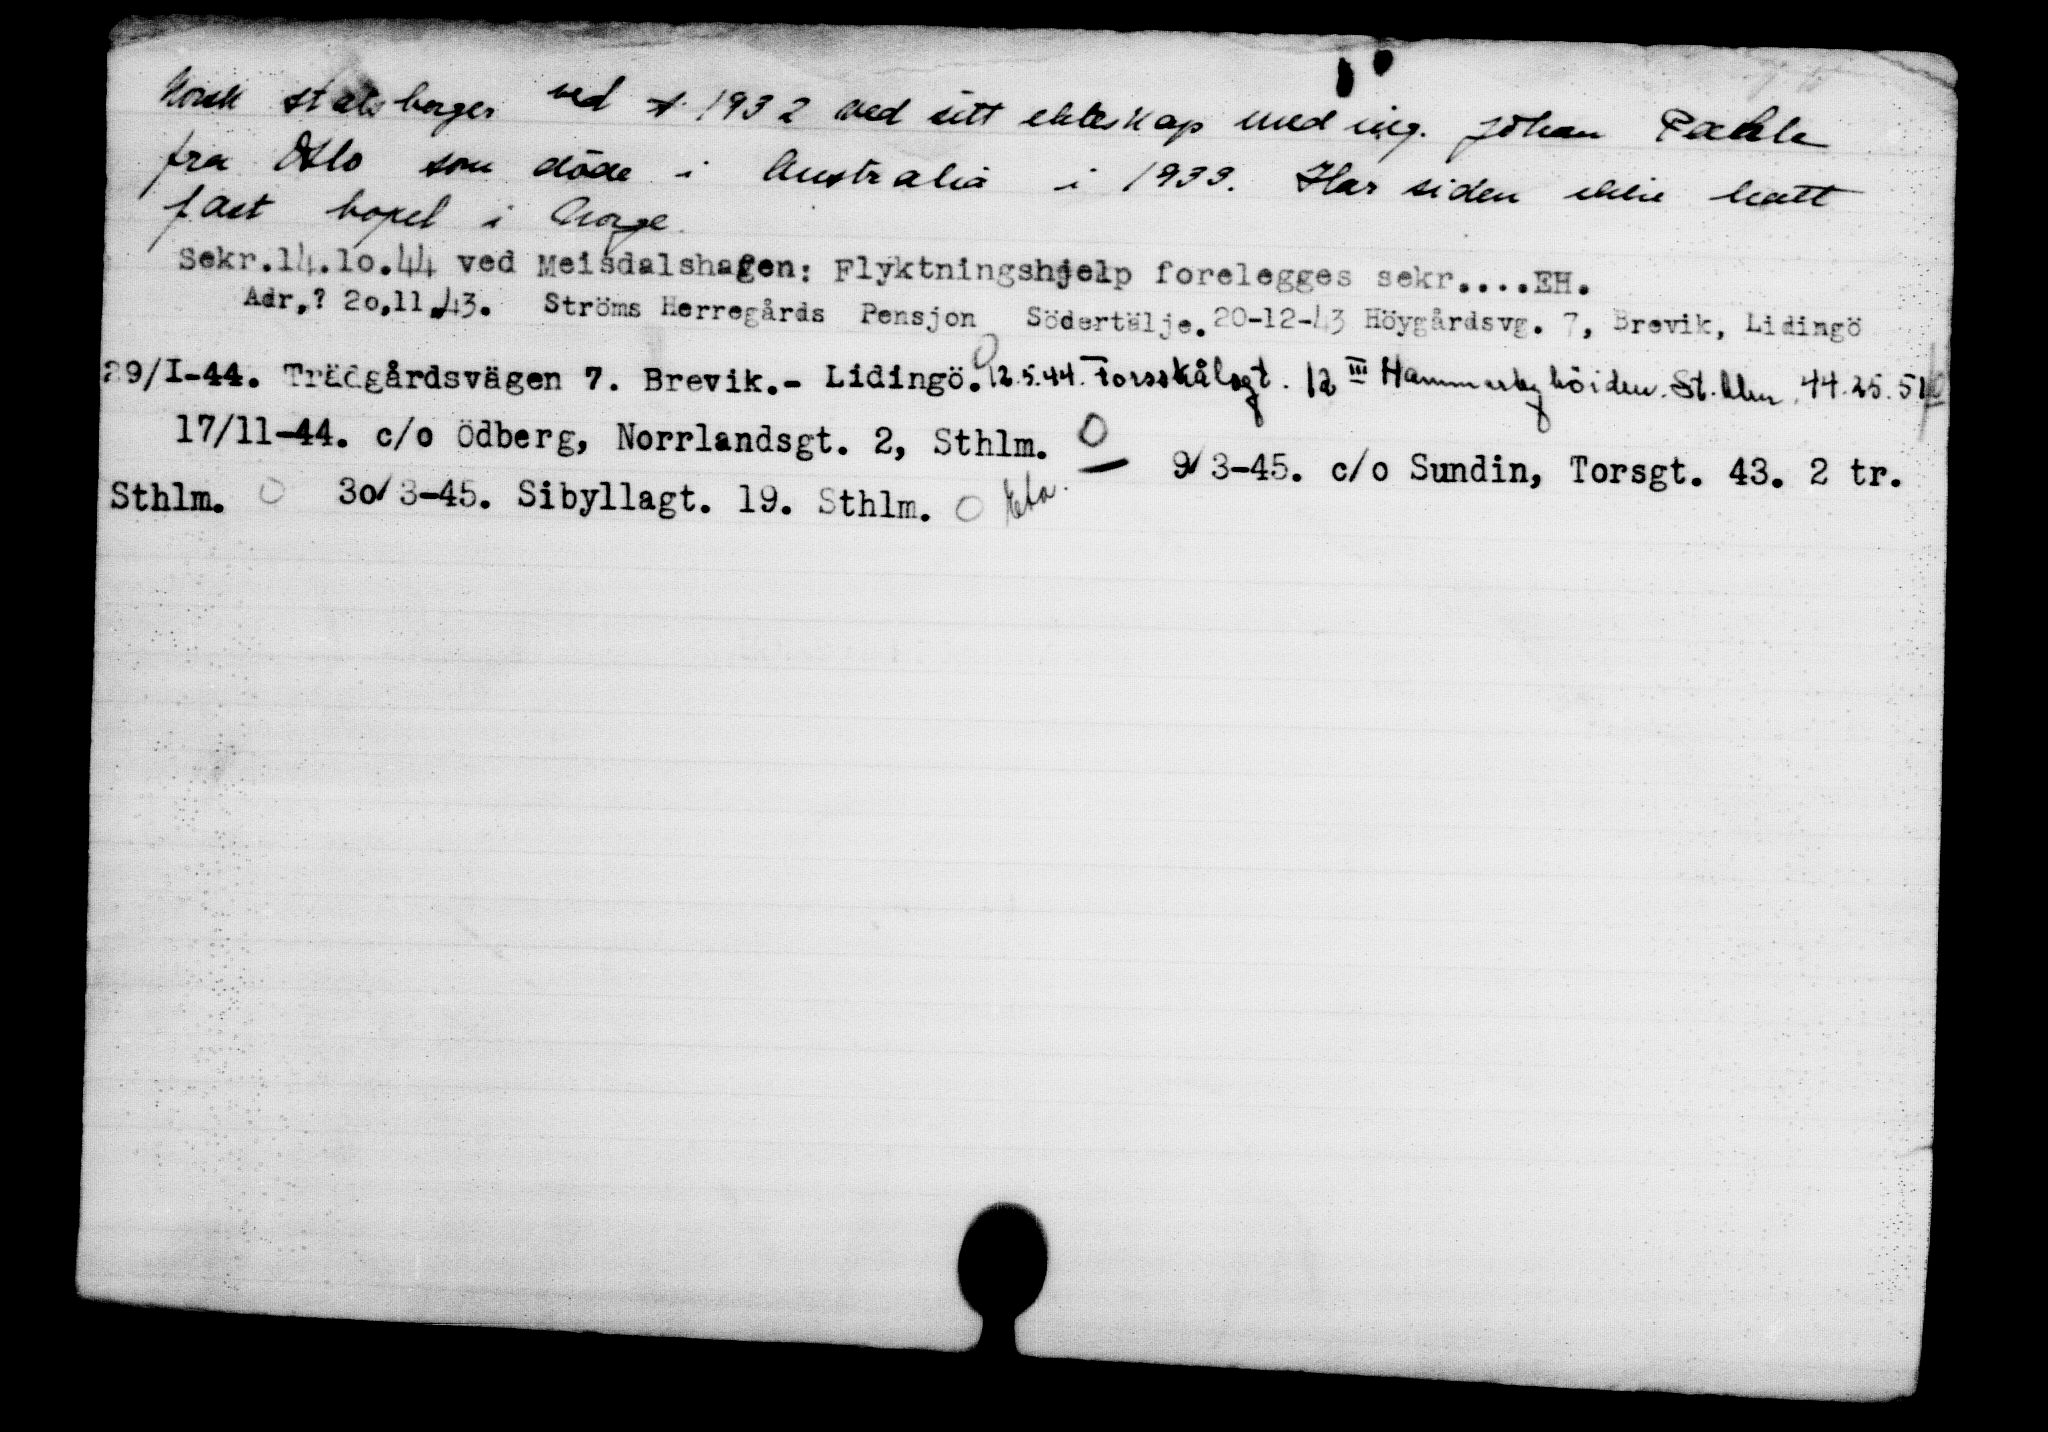 Norsk statsborger ved 1932 ved sitt ekteskap med ing. Johan
fra Oslo som døde i Australia i 1933. Har siden ikke hatt
fast bopel i Norge.
Sekr.14.10.44 ved Meisdalshagen: Flyktningshjelp forelegges sekr....EH.
Adr,? 20,11.43. Ströms Herregårds Pensjon Södertälje. 20-12-43 Höygårdsvg. 7, Brevik, Lidingö
29/I-44. Trädgårdsvägen 7. Brevik.- Lidingö. 12.5.44. Forsskålsgt. 12 III Hammarbyhöiden. St.hlm. 44.25.51
17/11-44. c/o Ödberg, Norrlandsgt. 2, Sthlm. 9/3-45. c/o Sundin, Torsgt. 43. 2 tr.
Sthlm. 30/3-45. Sibyllagt. 19. Sthlm.